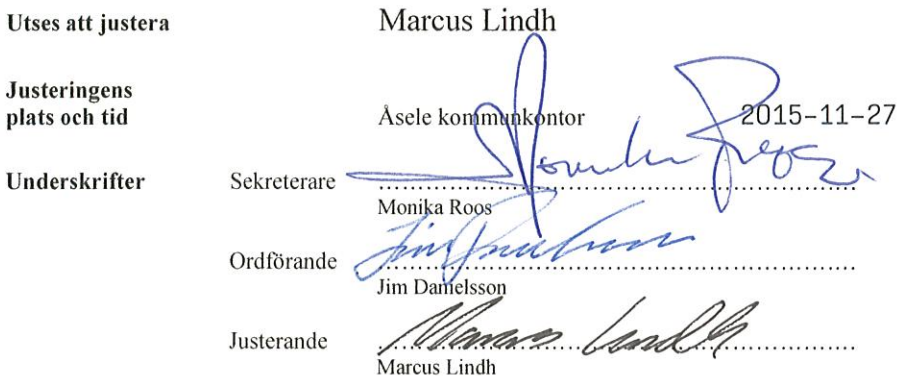 Utses att justera Marcus Lindh
Justeringens
plats och tid Åsele kommunkontor 2015-11-27
Underskrifter Sekreterare Monika Roos
Monika Roos
Ordförande Jim Danielsson
Jim Danielsson
Justerande Marcus Lindh
Marcus Lindh